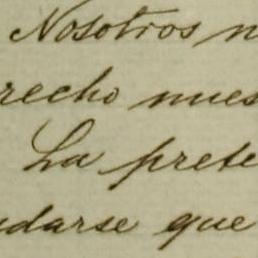 Nosotros n
recho nues
La prete
udarse que